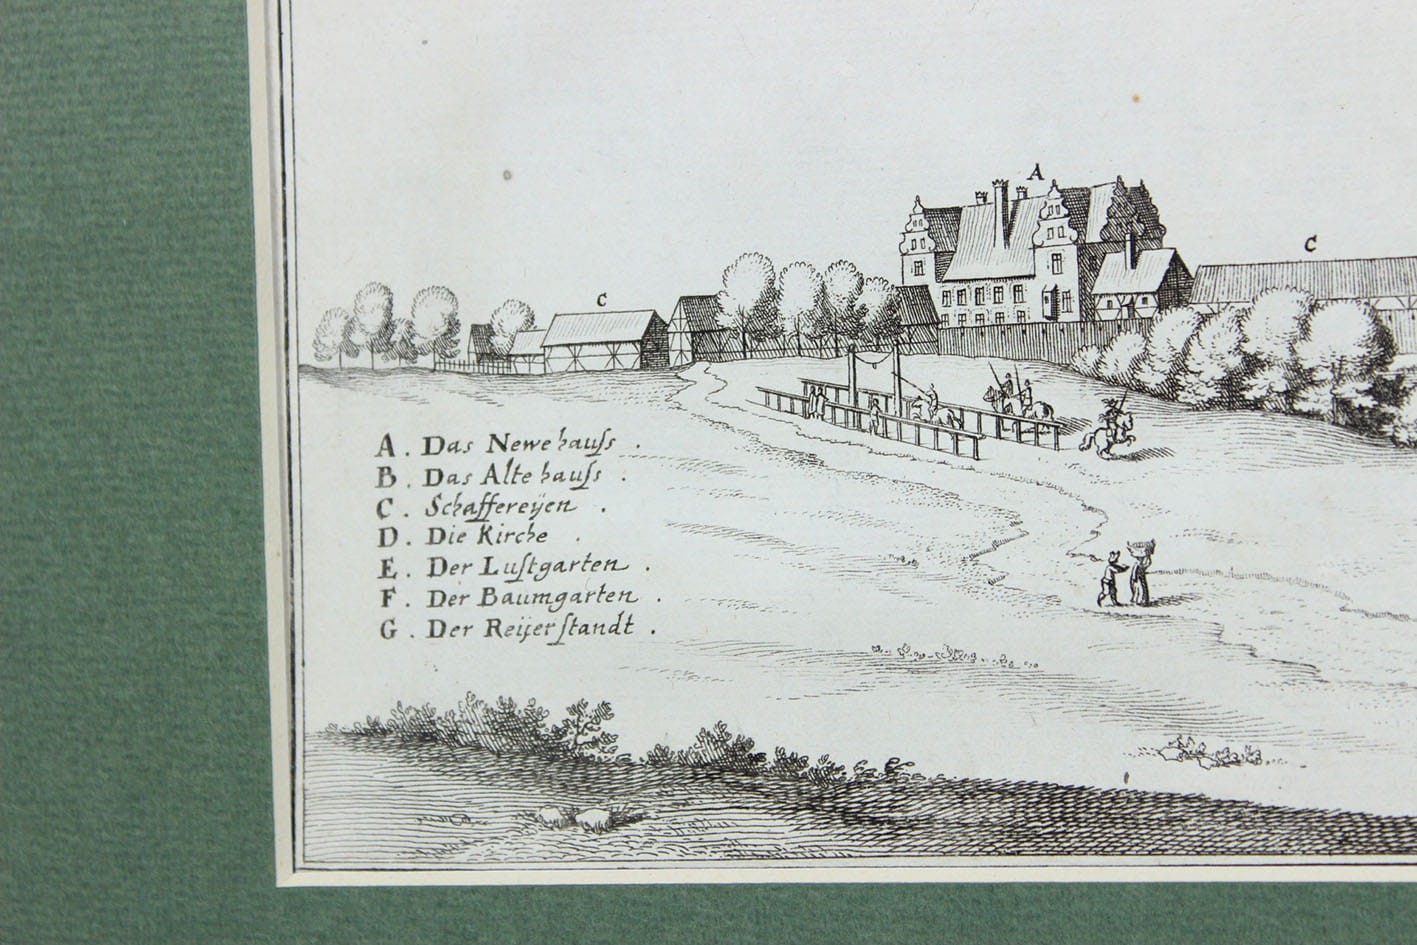 A
C
C
A. Das Newe hauſs.
B. Das Alte hauſs.
C. Schaffereÿen.
D. Die Kirche.
E. Der Luſtgarten.
F. Der Baumgarten.
G. Der Reÿerſtandt.